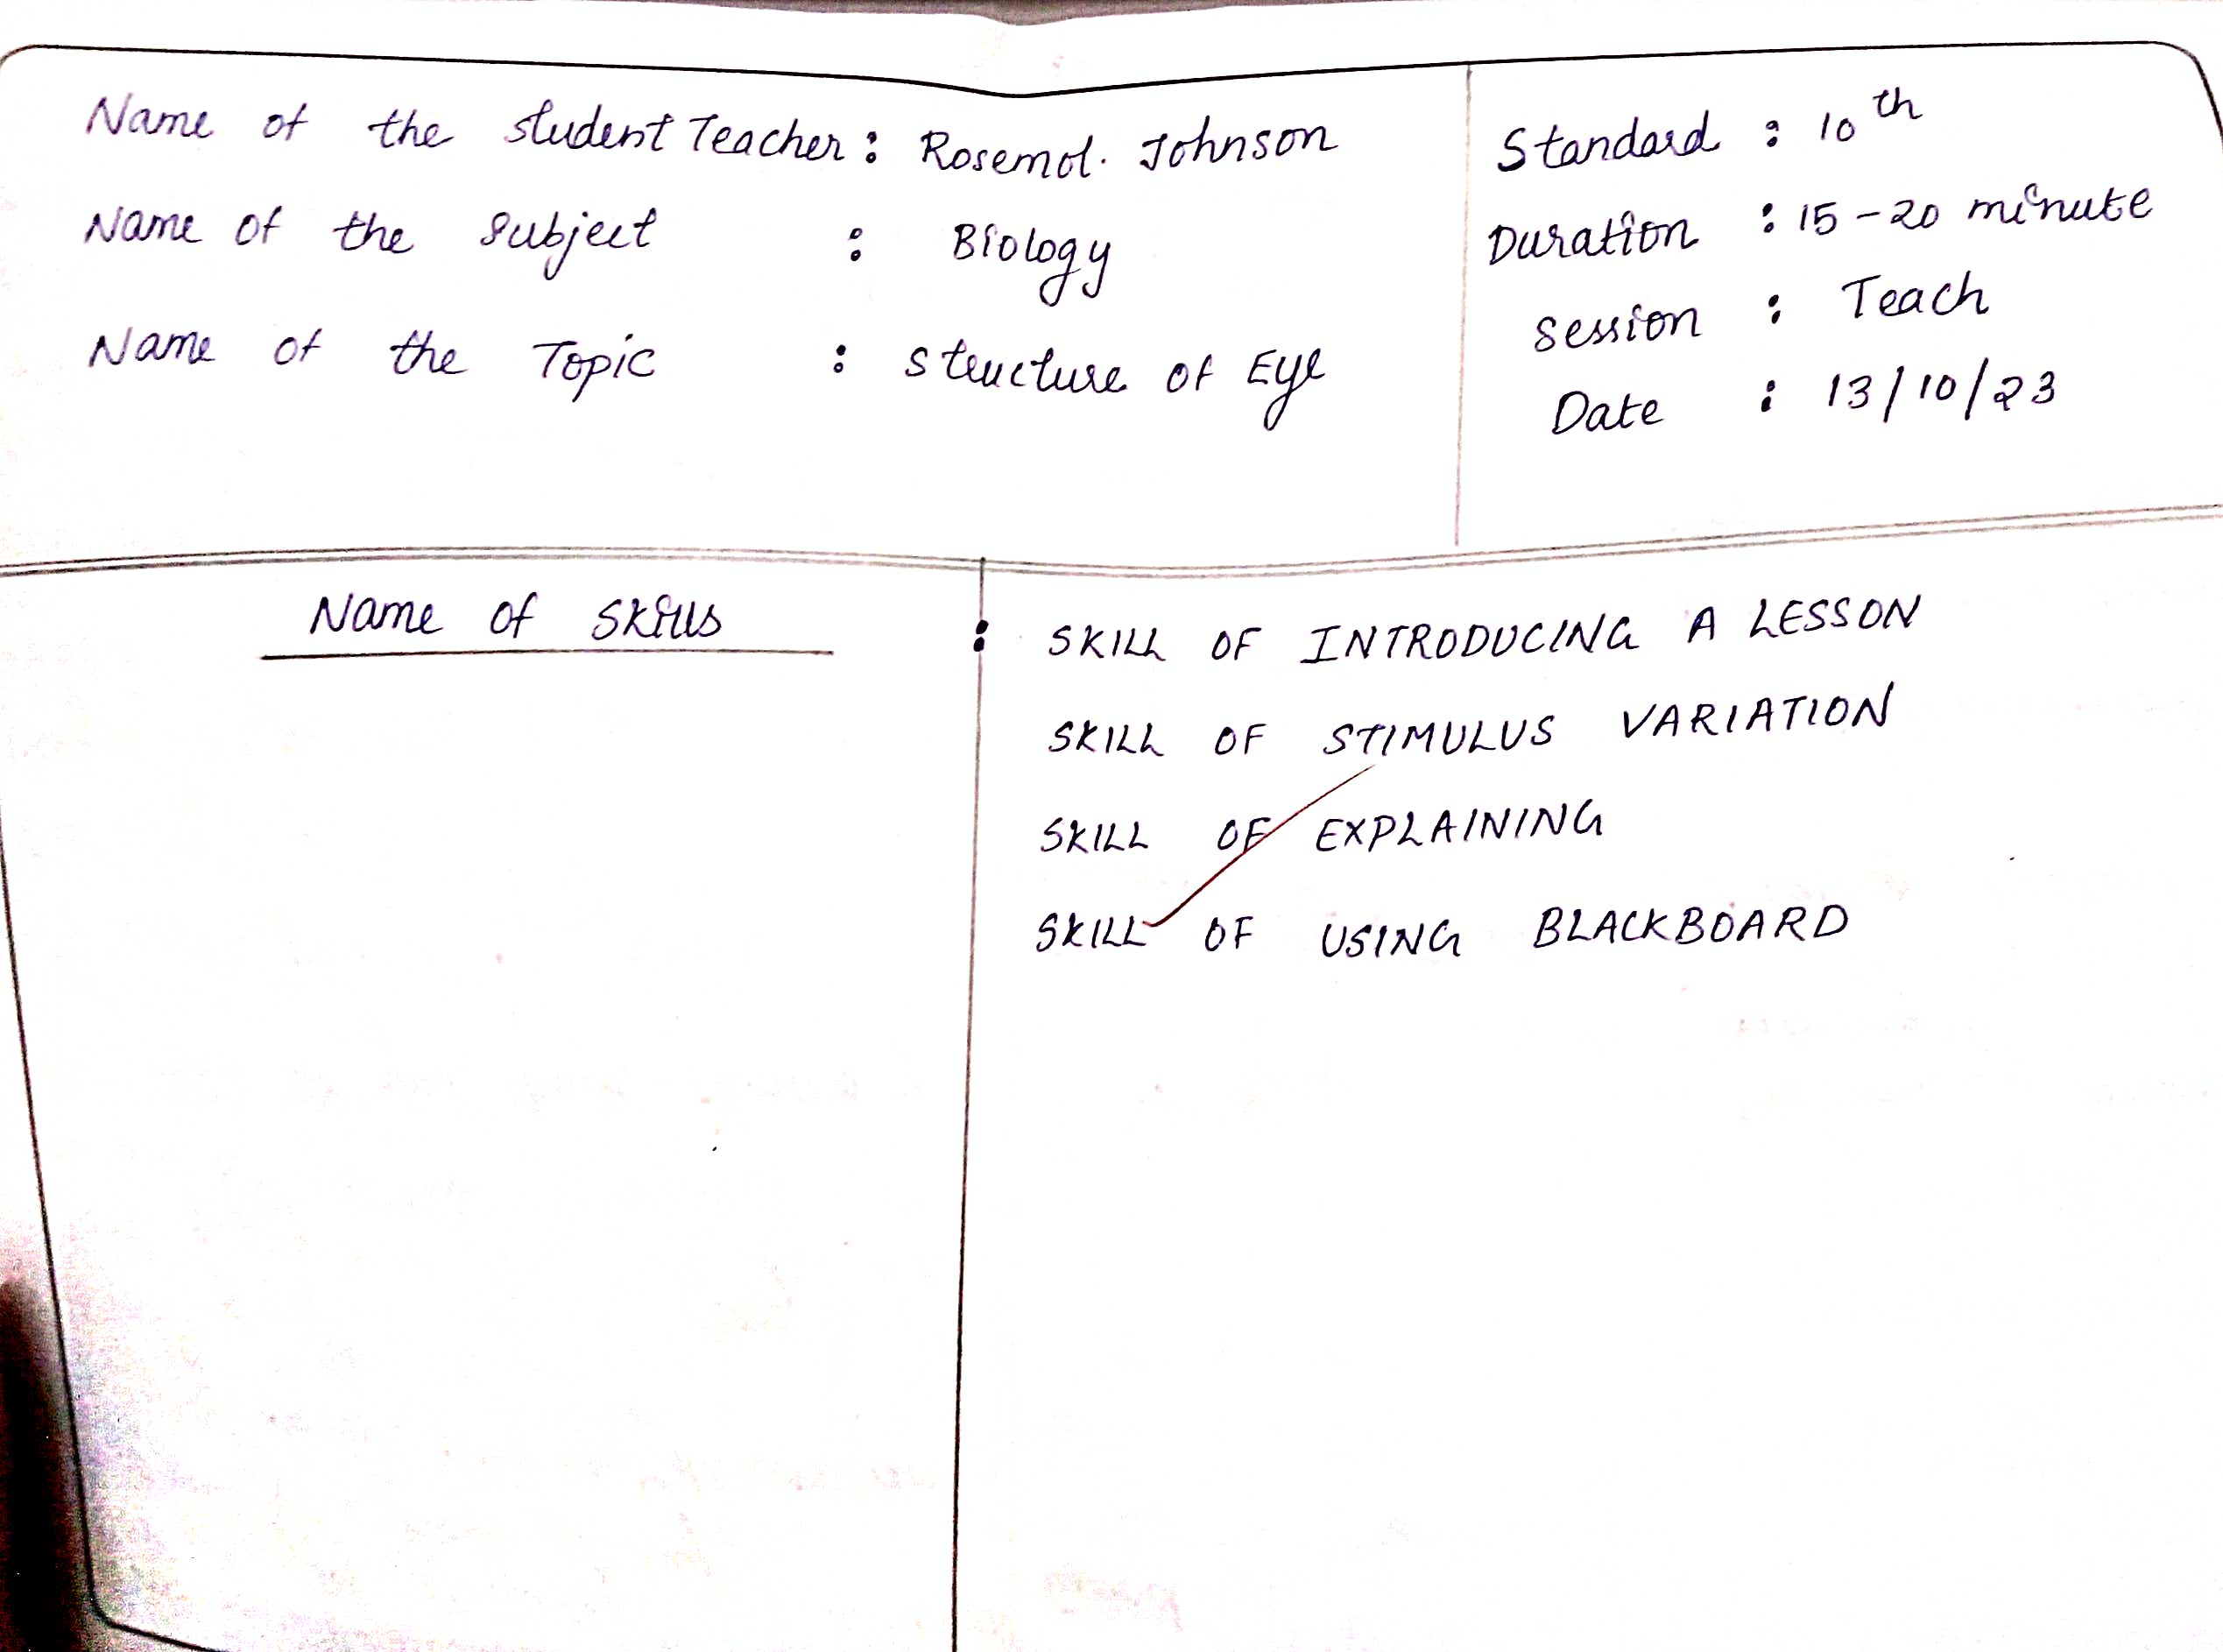 Name of the Student Teacher : Rosemol. Johnson
Name of the Subject : Biology
Name of the Topic : Structure of Eye
Standard : 10th
Duration : 15-20 minute
Session : Teach
Date : 13/10/23
Name of Skills : SKILL OF INTRODUCING A LESSON
SKILL OF STIMULUS VARIATION
SKILL OF EXPLAINING
SKILL OF USING BLACKBOARD